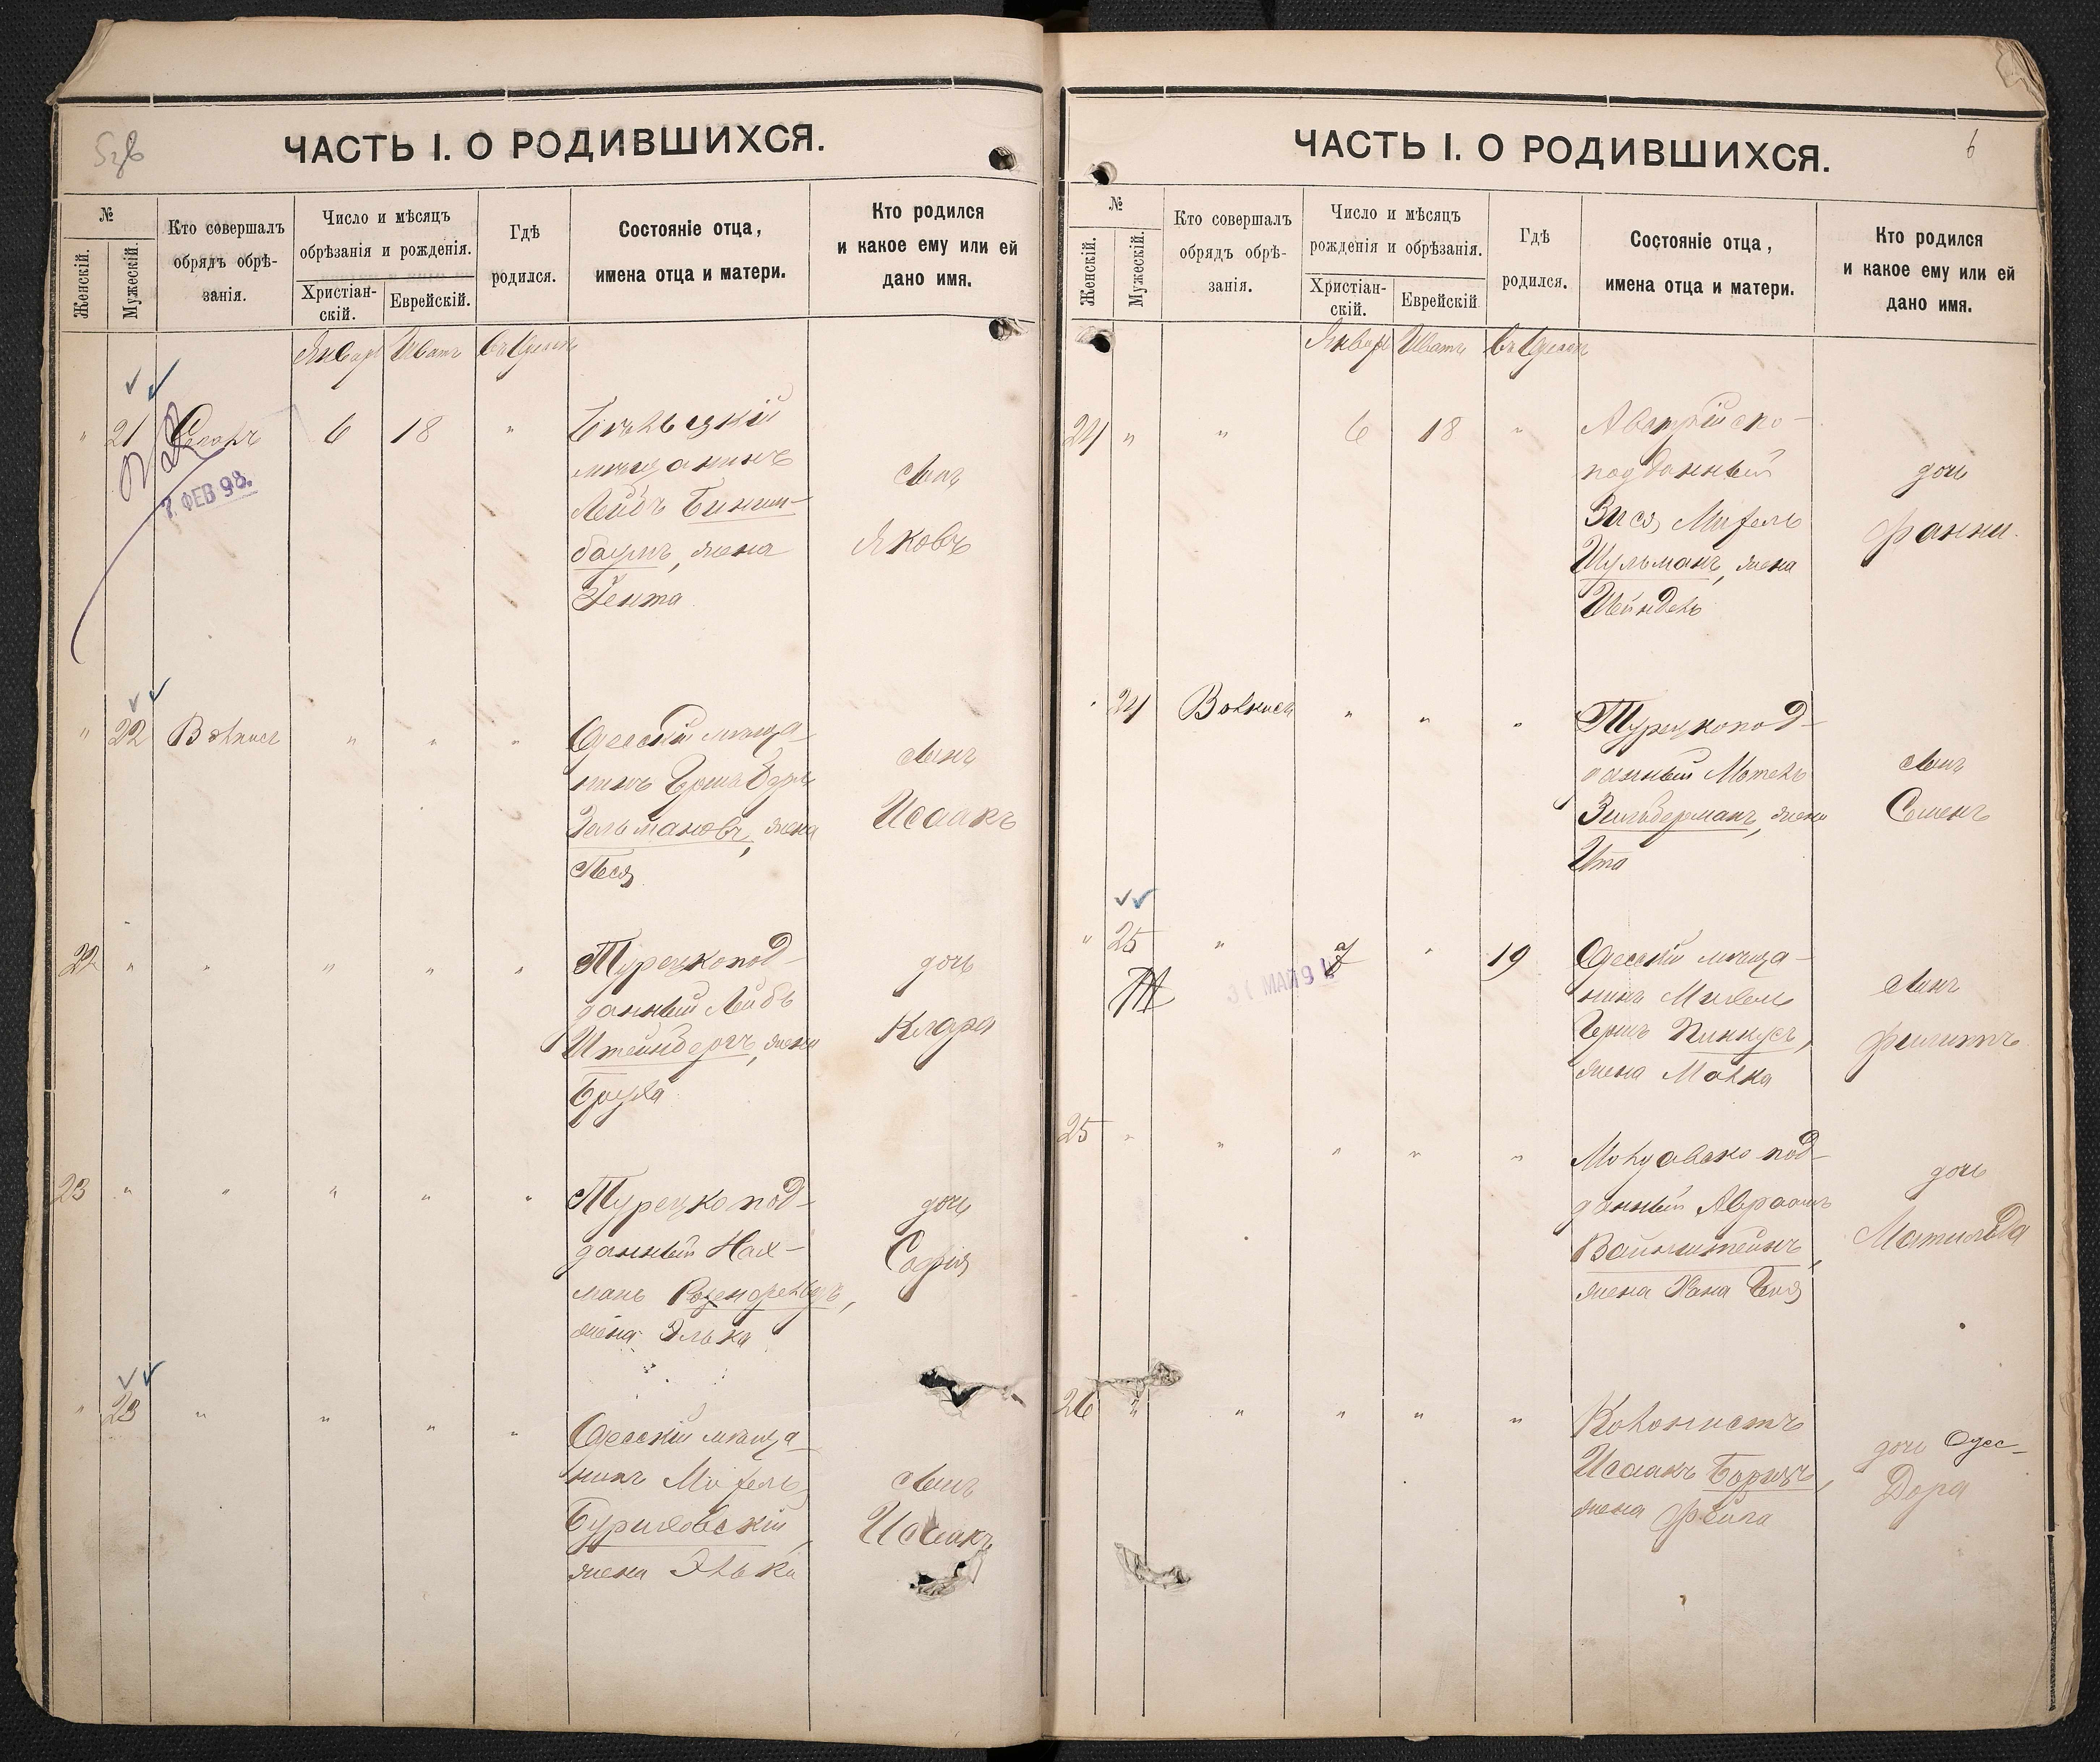 ЧАСТЬ I. О РОДИВШИХСЯ.
№
Женскій.
Мужескій.
Кто совершалъ
обрядъ обрѣ-
занія.
Число и мѣсяцъ
обрѣзанія и рожденія.
Христіан-
скій.
Еврейскій.
Гдѣ
родился.
Состояніе отца,
имена отца и матери.
Кто родился
и какое ему или ей
дано имя.
Январь Шватъ въ Одессѣ
" 21 6 18 "
мѣщанинъ
Лейбъ Биним-
баумъ, жена
Гента
сынъ
Яковъ
7. ФЕВ 98.
" 22 " " "
Одесскій мѣща-
нинъ
Зальмановъ, жена
Песя
сынъ
Исаакъ
22 " " " " "
Турецкопод-
данный Лейбъ
Штейнбергъ, жена
Бруха
дочь
Клара
23 " " " " "
Турецкопод-
данный Нах-
манъ Розенфельдъ,
жена Элька
дочь
Софія
" 23 " " " "
Одесскій мѣща-
нинъ
Буриховскій,
жена Элька
сынъ
Исаакъ
ЧАСТЬ I. О РОДИВШИХСЯ.
6
№
Женскій.
Мужескій.
Кто совершалъ
обрядъ обрѣ-
занія.
Число и мѣсяцъ
рожденія и обрѣзанія.
Христіан-
скій.
Еврейскій
Гдѣ
родился.
Состояніе отца,
имена отца и матери.
Кто родился
и какое ему или ей
дано имя.
Январь Шватъ въ Одессѣ
24 " " 6 18 "
Австрійско-
подданный
Зися
Шульманъ, жена
Шейндель
дочь
Фанни.
" 24 " " "
Турецкопод-
данный Мотель
Зильберманъ, жена
Ита
сынъ
Семенъ
" 25 " 7 " 19
31 МАЙ 9
Одесскій мѣща-
нинъ
Гершъ Пинкусъ,
жена Малка
сынъ
Филиппъ
25 " " " " "
Молдавскопод-
данный Авраамъ
Вайнштейнъ,
жена Хана
дочь
Матильда
26 " " " " "
Колонистъ
Исаакъ
жена Фейга
дочь Одес-
Дора